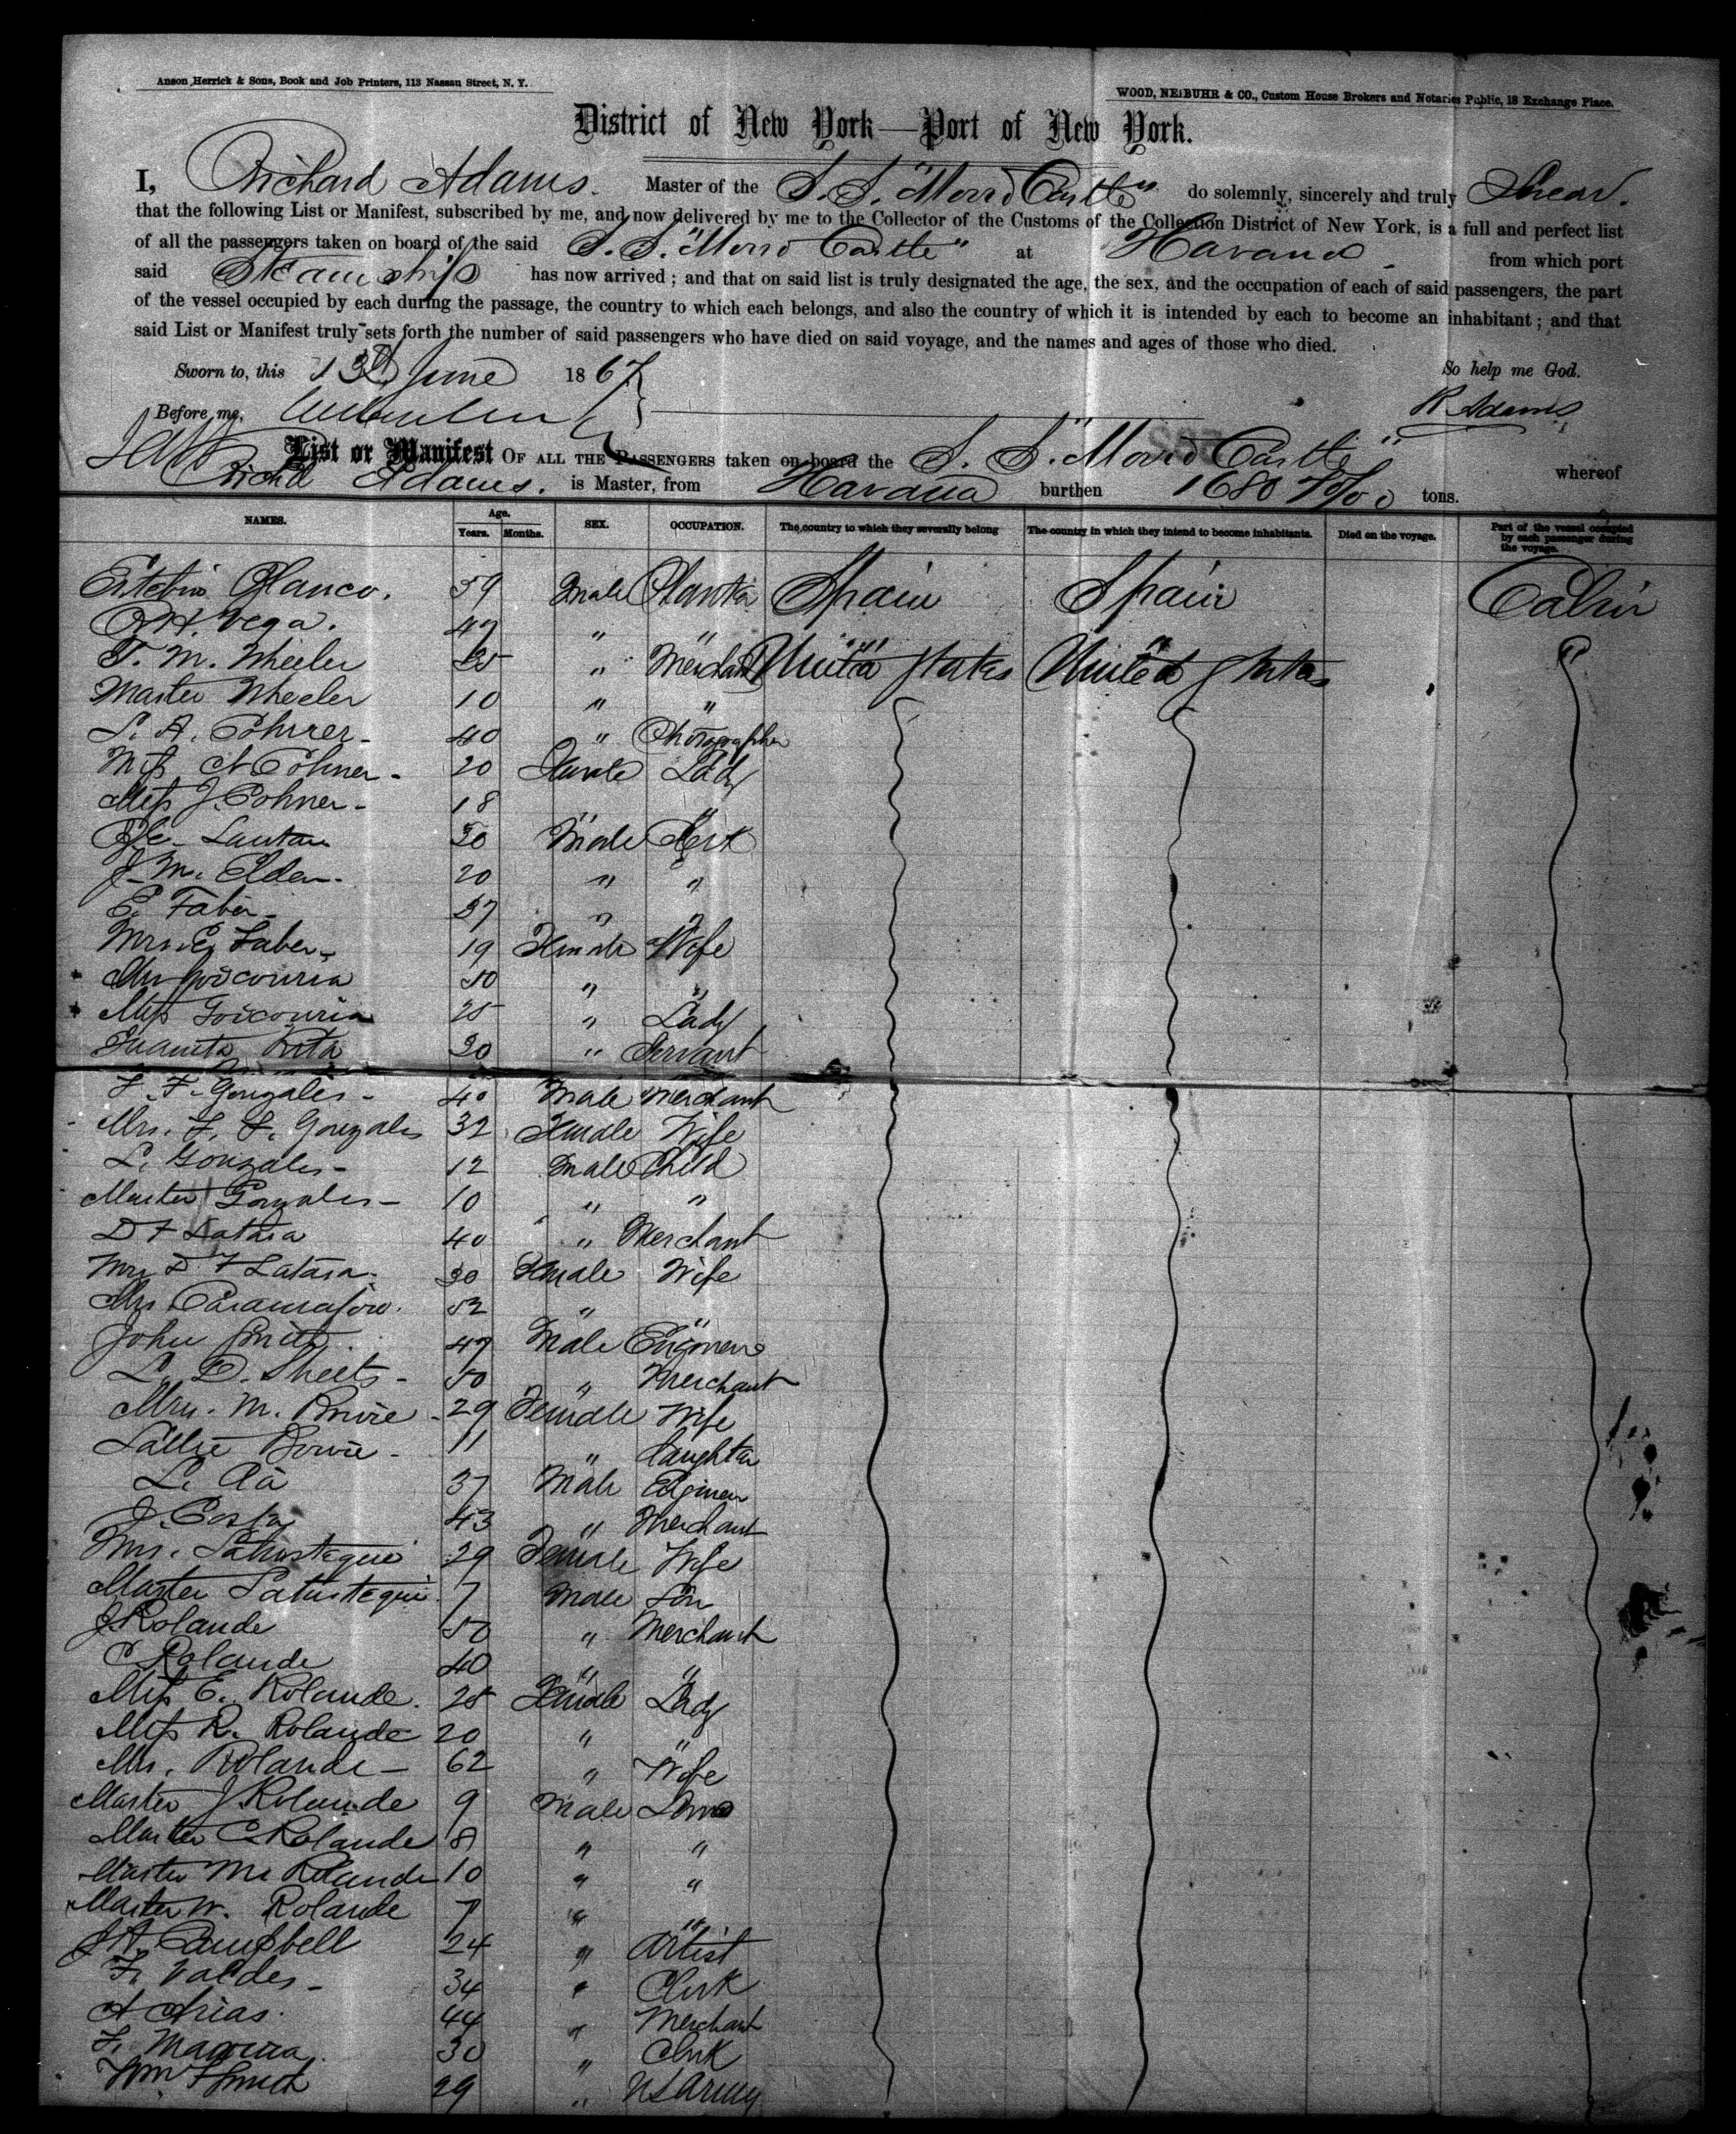 Anson Herrick & Sons, Book and Job Printers, 113 Nassau Street, N. Y.
WOOD, NEIBUHR & CO., Custom House Brokers and Notaries Public, 18 Exchange Place.
District of New York—Port of New York.
I, Richard Adams. Master of the S. S. "Morro Castle" do solemnly, sincerely and truly Swear.
that the following List or Manifest, subscribed by me, and now delivered by me to the Collector of the Customs of the Collection District of New York, is a full and perfect list
of all the passengers taken on board of the said S. S. "Morro Castle" at Havana from which port
said Steamship has now arrived; and that on said list is truly designated the age, the sex, and the occupation of each of said passengers, the part
of the vessel occupied by each during the passage, the country to which each belongs, and also the country of which it is intended by each to become an inhabitant; and that
said List or Manifest truly sets forth the number of said passengers who have died on said voyage, and the names and ages of those who died.
Sworn to, this 13 June 1867 So help me God.
Before me, R Adams
List or Manifest OF ALL THE PASSENGERS taken on board the S. S. "Morro Castle" whereof
Richd Adams. is Master, from Havana burthen 1680 tons.
NAMES. Age. Years. Months. SEX. OCCUPATION. The country to which they severally belong The country in which they intend to become inhabitants. Died on the voyage. Part of the vessel occupied by each passenger during the voyage.
59 Male Planter Spain Spain Cabin
Vega. 47 " " " "
T. M. Wheeler 35 " Merchant United States United States
Master Wheeler 10 " "
S. A. 40 " Photographer
Miss N Cohner - 20 Female Lady
Miss J. Cohner - 18 " "
30 Male Clerk
J. M. Elden - 20 " "
E. Faber - 37 " "
Mrs E. Faber - 19 Female Wife
Mrs Goicouria 50 " "
Miss Goicouria 25 " Lady
Juanita Rita 30 " Servant
F. F. Gonzales - 40 Male Merchant
Mrs. F. F. Gonzales 32 Female Wife
L. Gonzales - 12 Male Child
Master Gonzales - 10 " "
D F 40 " Merchant
Mrs D F Latasa. 30 Female Wife
Mrs 52 " "
John Smith 47 Male Engineer
L. D. Sheets - 50 " Merchant
Mrs. M. Bowie - 29 Female Wife
Sallie Bowie - 11 " daughter
L. 37 Male Engineer
J. Costa 43 " Merchant
Mrs. Satrustegui 29 Female Wife
Master Satrustegui 7 Male Son
J Rolande 50 " Merchant
C Rolande 40 " "
Miss E. Rolande. 25 Female Lady
Miss R. Rolande 20 " "
Mrs. Rolande - 62 " Wife
Master J. Rolande 9 Male Sons
Master C Rolande 8 " "
Master M. Rolande 10 " "
Master W. Rolande 7 " "
J A. Campbell 24 " Artist
F. Valdes - 34 " Clerk
A Arias. 44 " Merchant
F. 30 " Clerk
Wm F Smith 29 " US Army